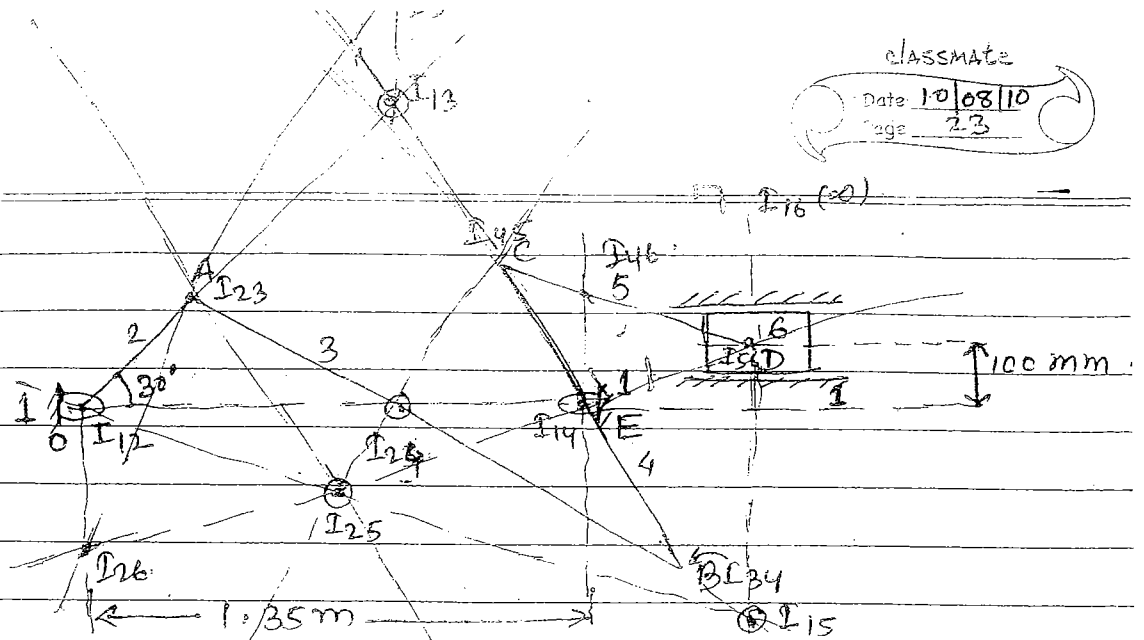 classmate
Date 10/08/10
Page 23
I13
I16 (∞)
I45
C
I46
5
A
I23
2
3
6
I56 D
100 mm
1
30°
1
0
I12
1
I14
E
I24
4
I25
I26
B I34
1.35m
I15